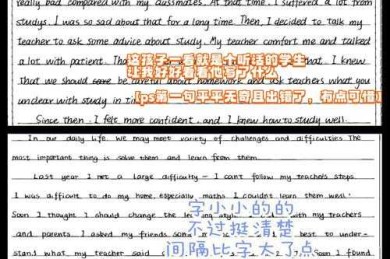 really bad compared with my classmates. At that time, I suffered a lot from
studys. I was so sad about that for a long time. Then, I decided to talk my
teacher to ask some advice about study. My teacher comfort me and talked
a lot with patient.
这孩子一看就是个听话的学生
让我好好看看他写了什么
I knew
That we should some be careful about homework and ask teachers what you
unclear with study in
(ps第一句平平无奇且出错了，有点可惜)
Since then, I felt more confident, and I knew how to study well.
In our daily life, we may meet variety of challenges and difficulties. The
most important thing is solve them and learn from them.
Last year I met a large difficulty — I can't follow my teacher's steps.
I was difficult to do my home, especially maths I couldn't learn them well.
Soon I thought I should change the learning with my teachers
字小小的的
and parents. I asked my friends some best to under-
不过挺清楚
stand what my teacher said Soon I found
间隔比字大了点